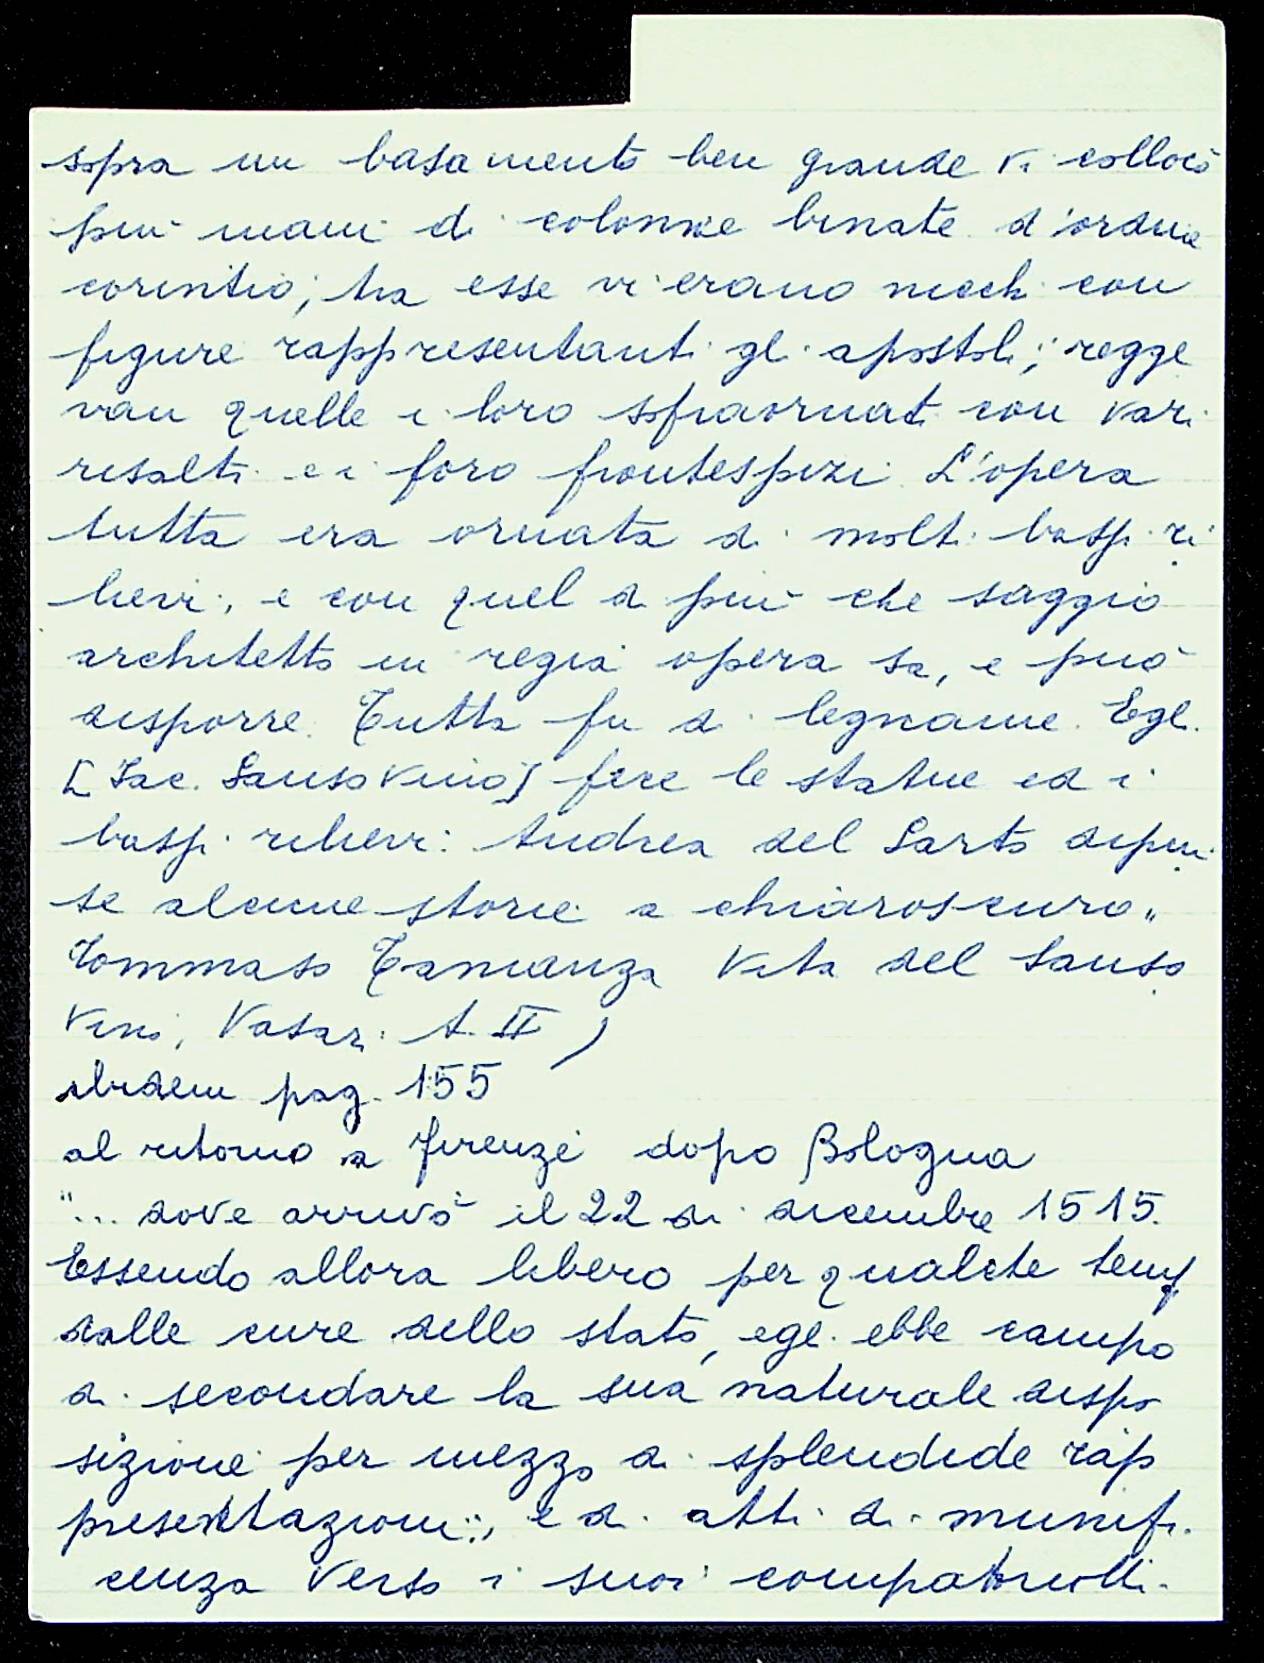 sopra un basamento ben grande vi collocò
più mani di colonne binate d'ordine
corintio; tra esse vi erano nicch. con
figure rappresentanti gli apostoli; regge
van quelle i loro sopraornati con vari
risalti e i loro frontespizi. L'opera
tutta era ornata di molti bassi ri
lievi, e con quel di più che saggio
architetto in regia opera sa, e può
disporre. Tutta fu di legname. Egli
[Jac. Sansovino] fece le statue ed i
bassi rilievi: Andrea del Sarto dipin
se alcune storie a chiaroscuro"
Tommaso Temanza Vita del Sanso
vino, Vasari t. II)
ibidem pag. 155
al ritorno a Firenze dopo Bologna
"... dove arrivò il 22 di dicembre 1515.
Essendo allora libero per qualche temp
dalle cure dello stato, egli ebbe campo
di secondare la sua naturale dispo
sizione per mezzo di splendide rap
presentazioni, e di atti di munifi
cenza verso i suoi compatriotti.